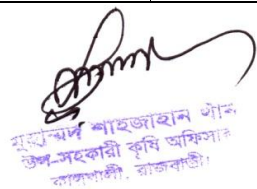 মুহাম্মদ শাহজাহান খান
উপ-সহকারী কৃষি অফিসার
রাজবাড়ী।